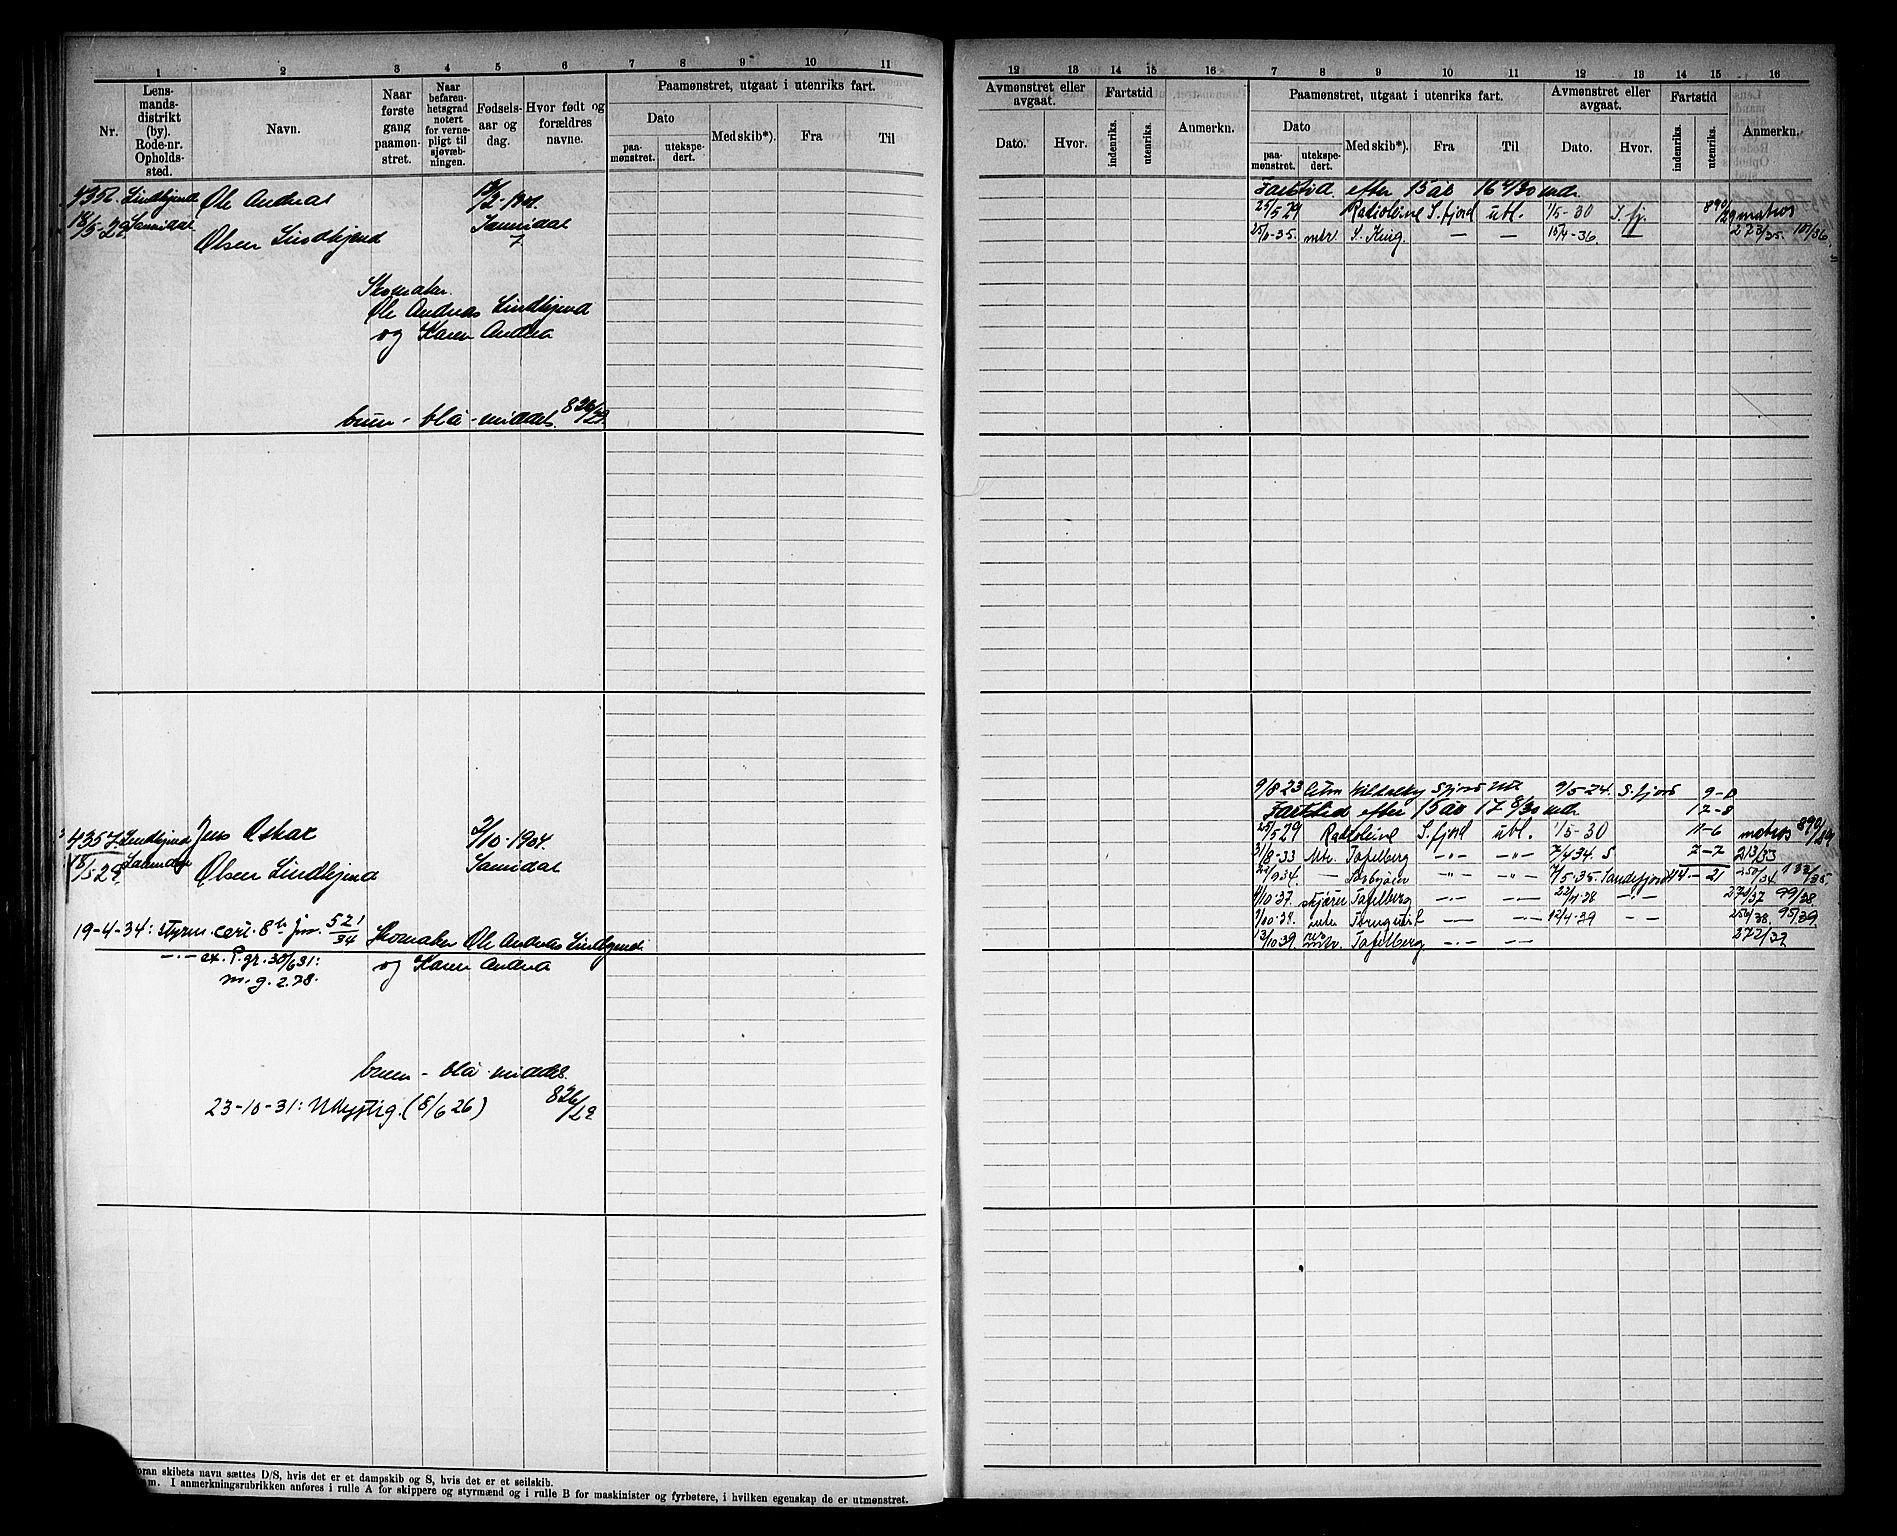 1 2 3 4 5 6 7 8 9 10 11
Nr.
Lens-
mands-
distrikt
(by).
Rode-nr.
Opholds-
sted.
Navn.
Naar
første
gang
paamøn-
stret.
Naar
befaren-
hetsgrad
notert
for verne-
pligt til
sjøvæb-
ningen.
Fødsels-
aar og
dag.
Hvor født og
forældres
navne.
Paamønstret, utgaat i utenriks fart.
Dato
paa-
mønstret.
utekspe-
dert.
Med skib*).
Fra
Til
4356. Lindhjend Ole Andreas
18/5-29 Sannidal Olsen Lindhjend
Sannidal
Skomaker
Ole Andreas Lindhjend
og Karen Andrea
brun - blå - middels. 826/29.
4357. Lindhjend Jens Oskar 2/10-1904.
18/5 29. Olsen Lindhjend Sannidal
19-4-34: styrm. cert. 521/34 Skomaker Ole Andreas Lindhjend
-.- ex. P.gr. 30/6 31: og Karen Andrea
m.g. 2.78.
bruen - blå middels.
23-10-31: Udygtig. (8/6 26) 826/29
foran skibets navn sættes D/S, hvis det er et dampskib og S, hvis det er et seilskib.
am. I anmerkningsrubrikken anføres i rulle A for skippere og styrmænd og i rulle B for maskinister og fyrbøtere, i hvilken egenskap de er utmønstret.
12 13 14 15 16 7 8 9 10 11 12 13 14 15 16
Avmønstret eller
avgaat.
Dato.
Hvor.
Fartstid
indenriks.
utenriks.
Anmerkn.
Paamønstret, utgaat i utenriks fart.
Dato
paa-
mønstret.
utekspe-
dert.
Med skib*).
Fra
Til
Avmønstret eller
avgaat.
Dato.
Hvor.
Fartstid
indenriks.
utenriks.
Anmerkn.
Fartstid efter 15 år 16 4/30 mdr.
25/5 29. Radioleine S.fjord utl. 1/5-30 S.fj. 890/29 matros
mtr. S. King. — — 15/4-36. — 223/35. 101/36.
9/8 23 9/5-24. S.fjord 9-0
Fartstid efter 15 år 17 8/30 mdr 12-8
25/5 29 Radioleine S.fjord utl. 1/5-30 11-6 matros 890/29
31/8-33 Mtr. Tafelberg -"- -"- 7/4 34. S 7-7 213/33
— -"- -"- 7/5-35. Sandefjord 44 - 21 250/34 132/35.
4/10-37. Tafelberg -.- -.- 22/4-38 -.- 274/37 99/38.
-.- 12/4-39 - - 256/38. 95/39.
13/10 39. Tafelberg -.- -- 272/39